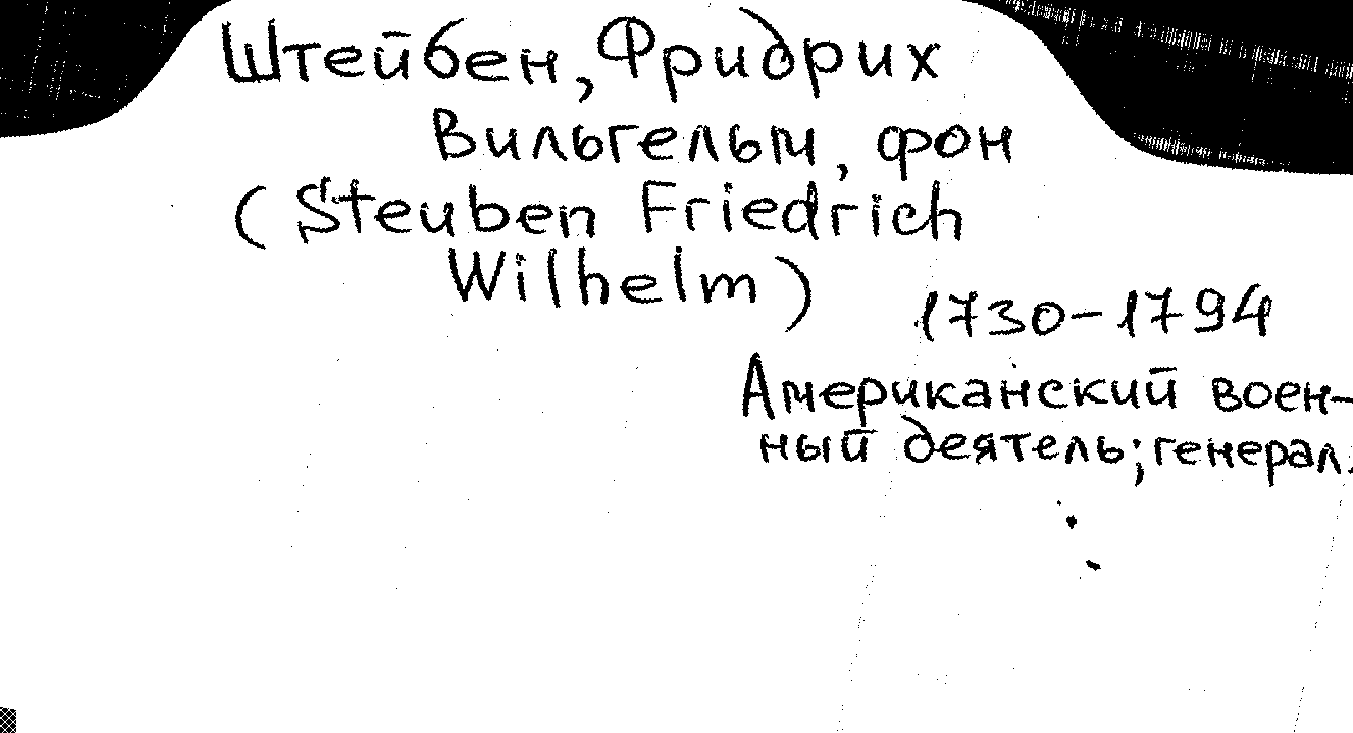 Штейбен, Фридрих
Вильгельм, фон
(Steuben Friedrich
Wilhelm)
1730-1794
Американский воен-
ный деятель; генерал.